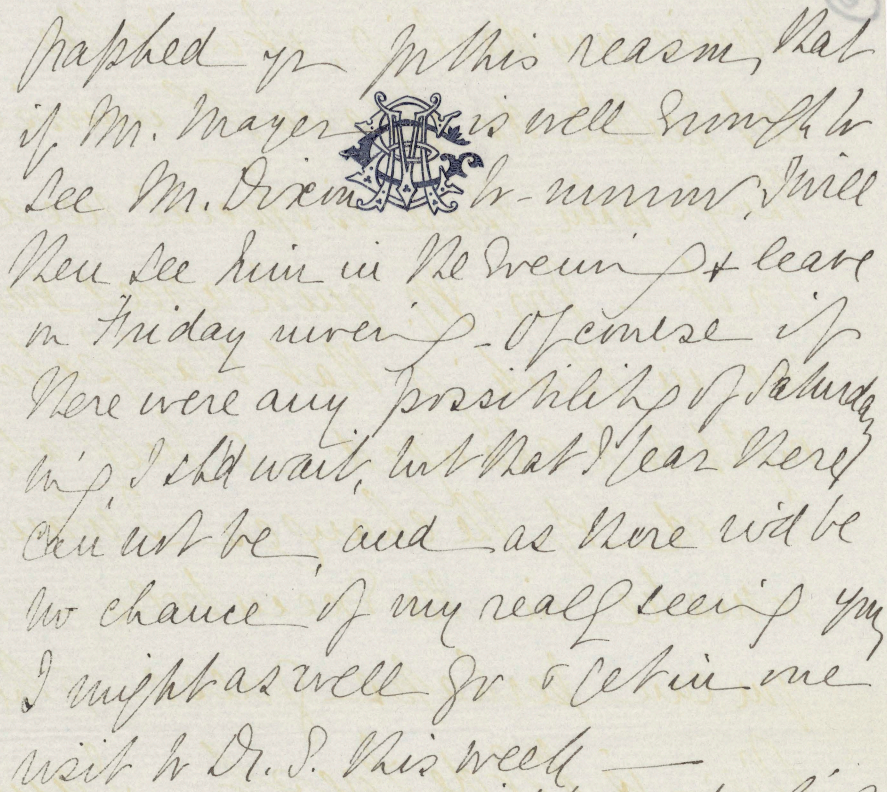 graphed yr for this reason, that
if Mr. Mayer is well enough to
see Mr. Dixon to-morrow, I will
then see him in the evening & leave
on Friday morning - Of course if
there were any possibility of Saturday
mg, I shd wait, but that I fear there
can not be, and as there wd be
no chance of my really seeing you,
I might as well go & get in one
visit to Dr. S. this week —